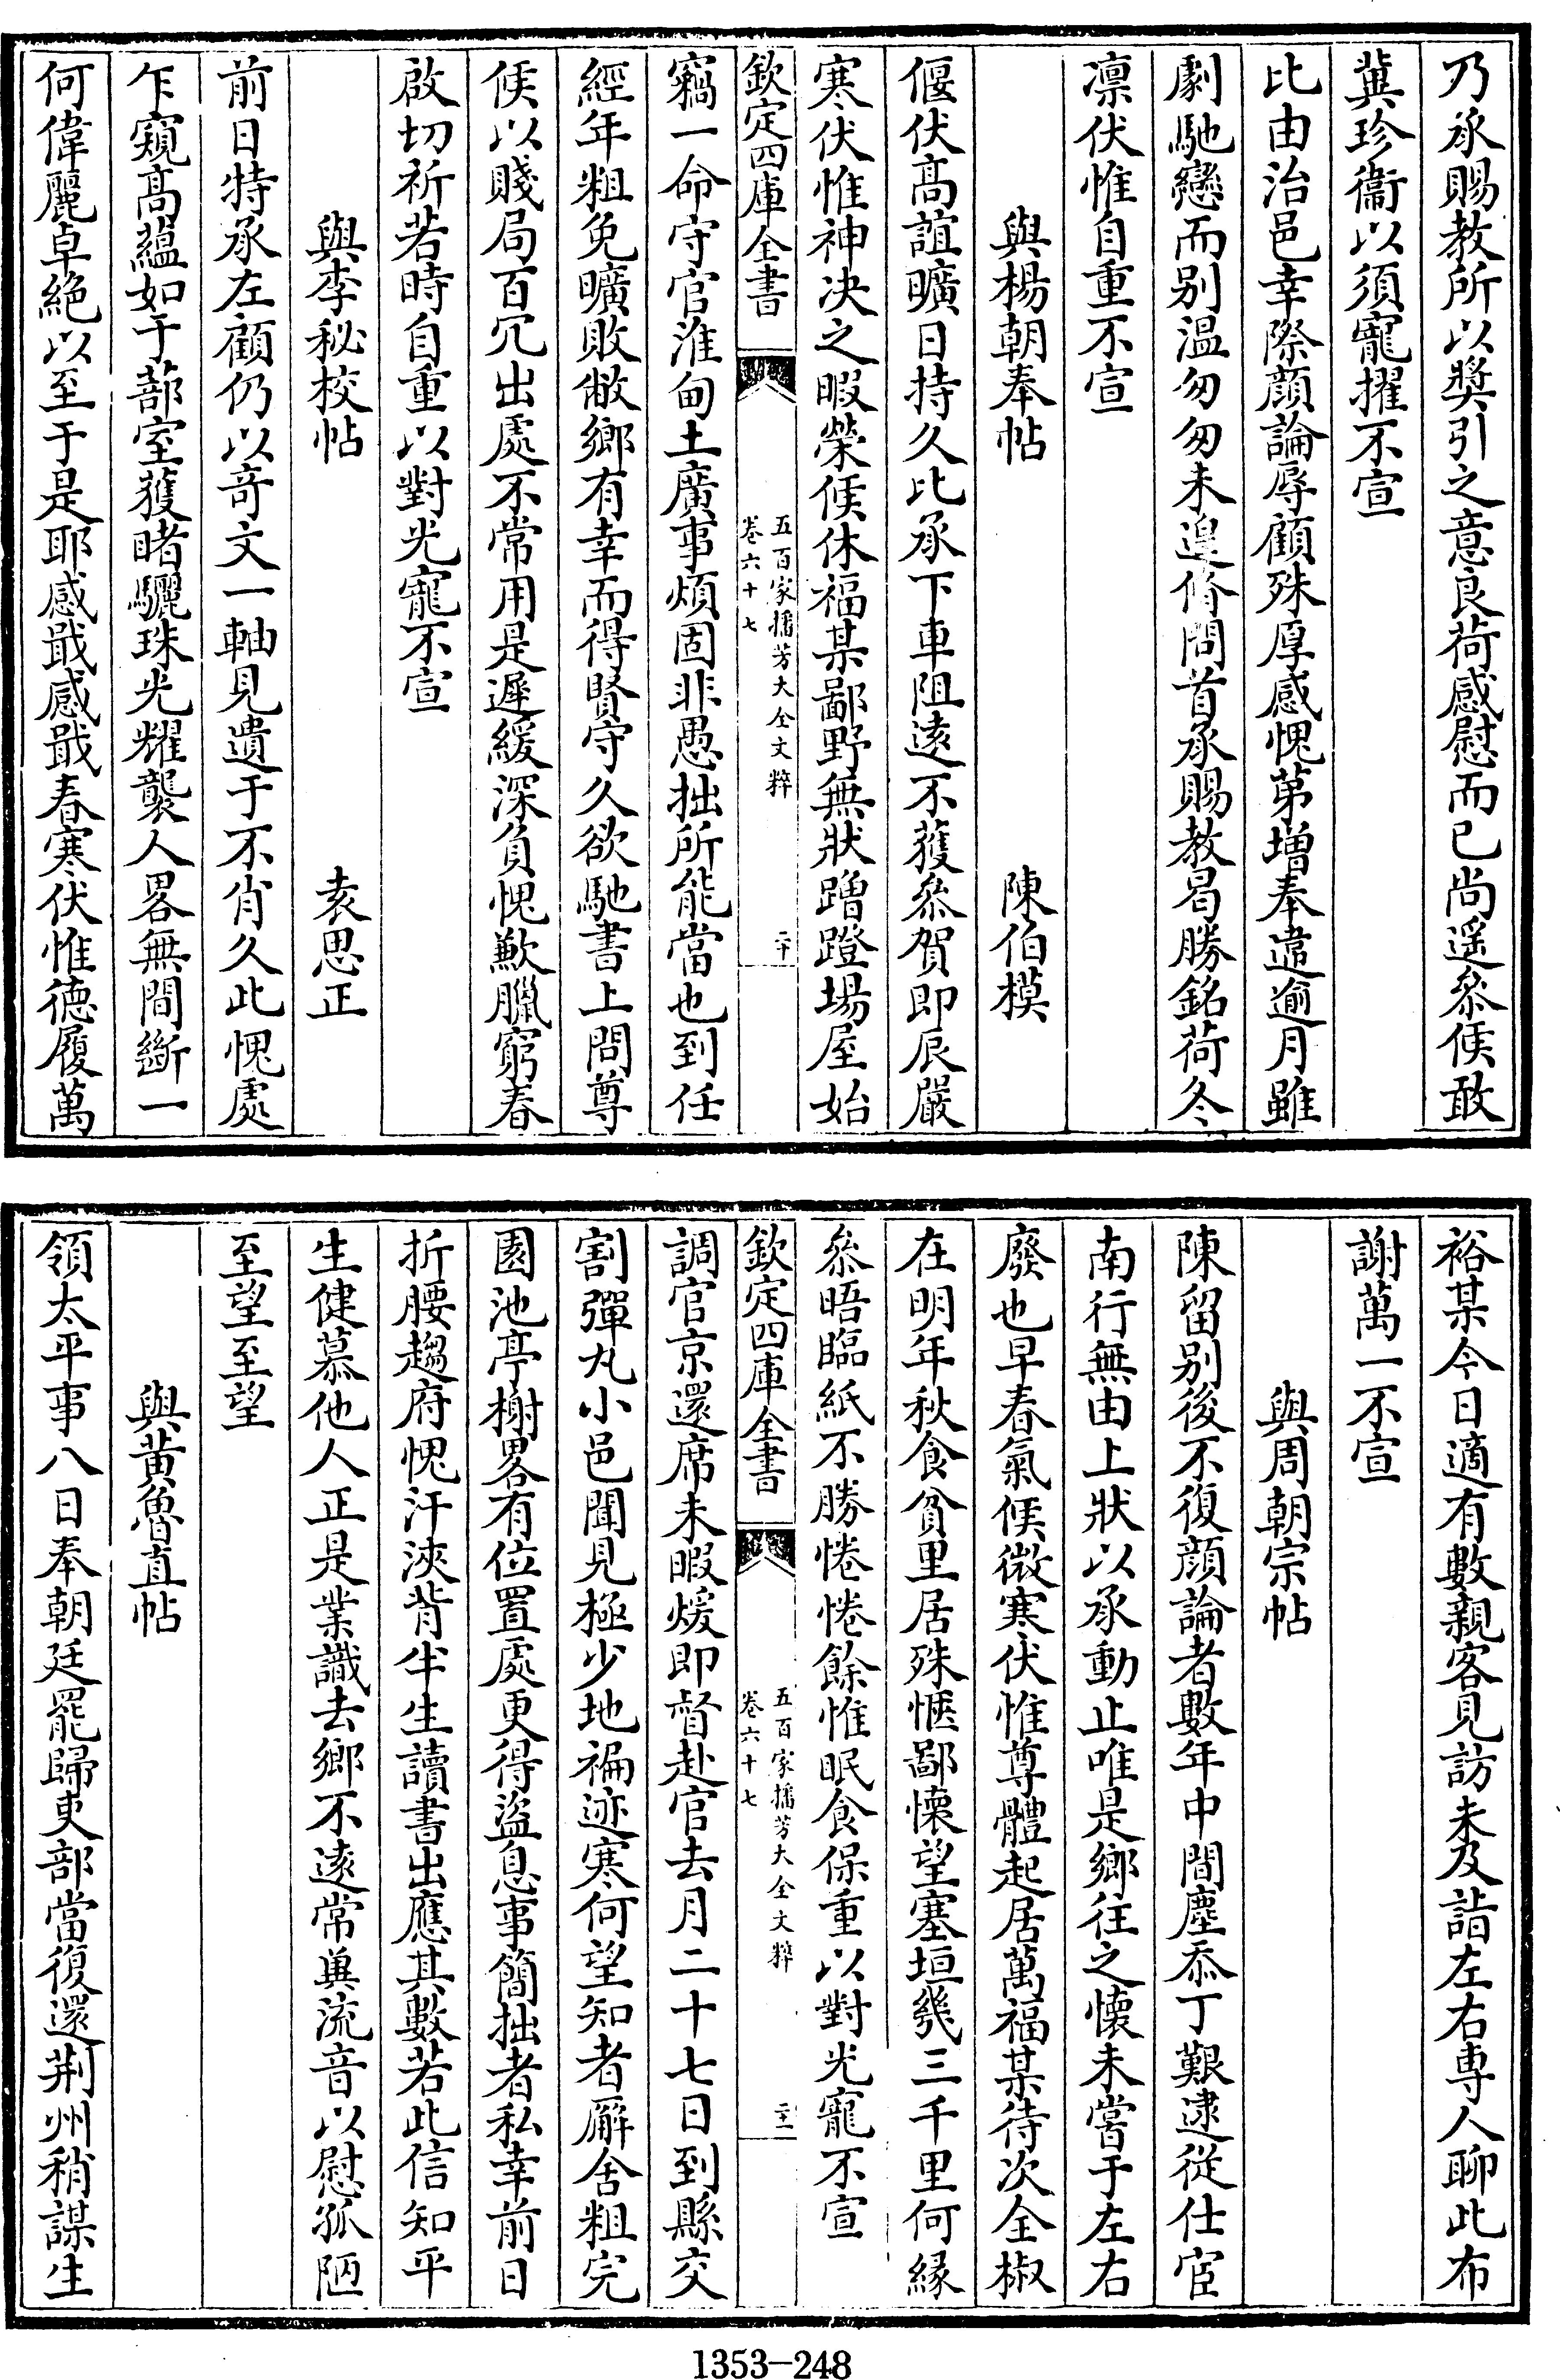 乃承賜教所以奬引之意良荷感慰而已尚遥叅候敢
冀珍衞以須寵擢不宣
比由治邑幸際顔論辱顧殊厚感愧第增奉違逾月雖
劇馳戀而别溫匆匆未遑脩問首承賜教曷勝銘荷冬
凛伏惟自重不宣
與楊朝奉帖 陳伯模
偃伏髙誼曠日持久比承下車阻逺不獲叅賀即辰嚴
寒伏惟神决之暇榮候休福某鄙野無狀蹭蹬場屋始
欽定四庫全書 五百家播芳大全文粹 卷六十七 二十
竊一命守官淮甸土廣事煩固非愚拙所能當也到任
經年粗免曠敗敝鄉有幸而得賢守久欲馳書上問尊
候以賤局百冗出處不常用是遲緩深負愧歉臘窮春
啟切祈若時自重以對光寵不宣
與李秘校帖 袁思正
前日特承左顧仍以竒文一軸見遺于不肖久此愧處
乍窺髙蘊如于蔀室獲睹驪珠光耀襲人畧無間斷一
何偉麗卓絶以至于是耶感戢感戢春寒伏惟德履萬
裕某今日適有數親客見訪未及詣左右専人聊此布
謝萬一不宣
與周朝宗帖
陳留别後不復顔論者數年中間塵忝丁艱逮從仕宦
南行無由上狀以承動止唯是鄉往之懷未嘗于左右
廢也早春氣候微寒伏惟尊體起居萬福某待次全椒
在明年秋食貧里居殊愜鄙懷望塞垣幾三千里何縁
叅晤臨紙不勝惓惓餘惟眠食保重以對光寵不宣
欽定四庫全書 五百家播芳大全文粹 卷六十七 二十一
調官京還席未暇煖即督赴官去月二十七日到縣交
割彈丸小邑聞見極少地褊迹寒何望知者廨舍粗完
園池亭榭畧有位置處更得盜息事簡拙者私幸前日
折腰趨府愧汗浹背半生讀書出應其數若此信知平
生健慕他人正是業識去鄉不逺常兾流音以慰孤陋
至望至望
與黄魯直帖
領太平事八日奉朝廷罷歸吏部當復還荆州稍謀生
1353-248